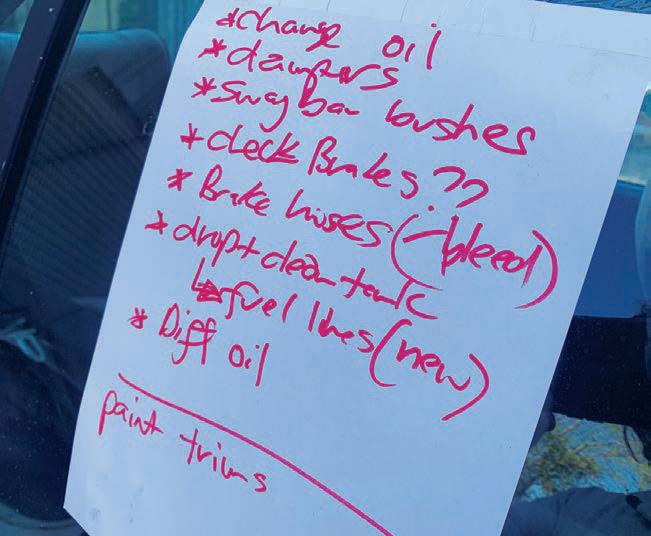 *change oil
*dampers
*sway bar bushes
*check Brakes??
*Brake hoses (-bleed)
*drop + clean tank
↳ fuel lines (new)
*Diff oil
paint trims